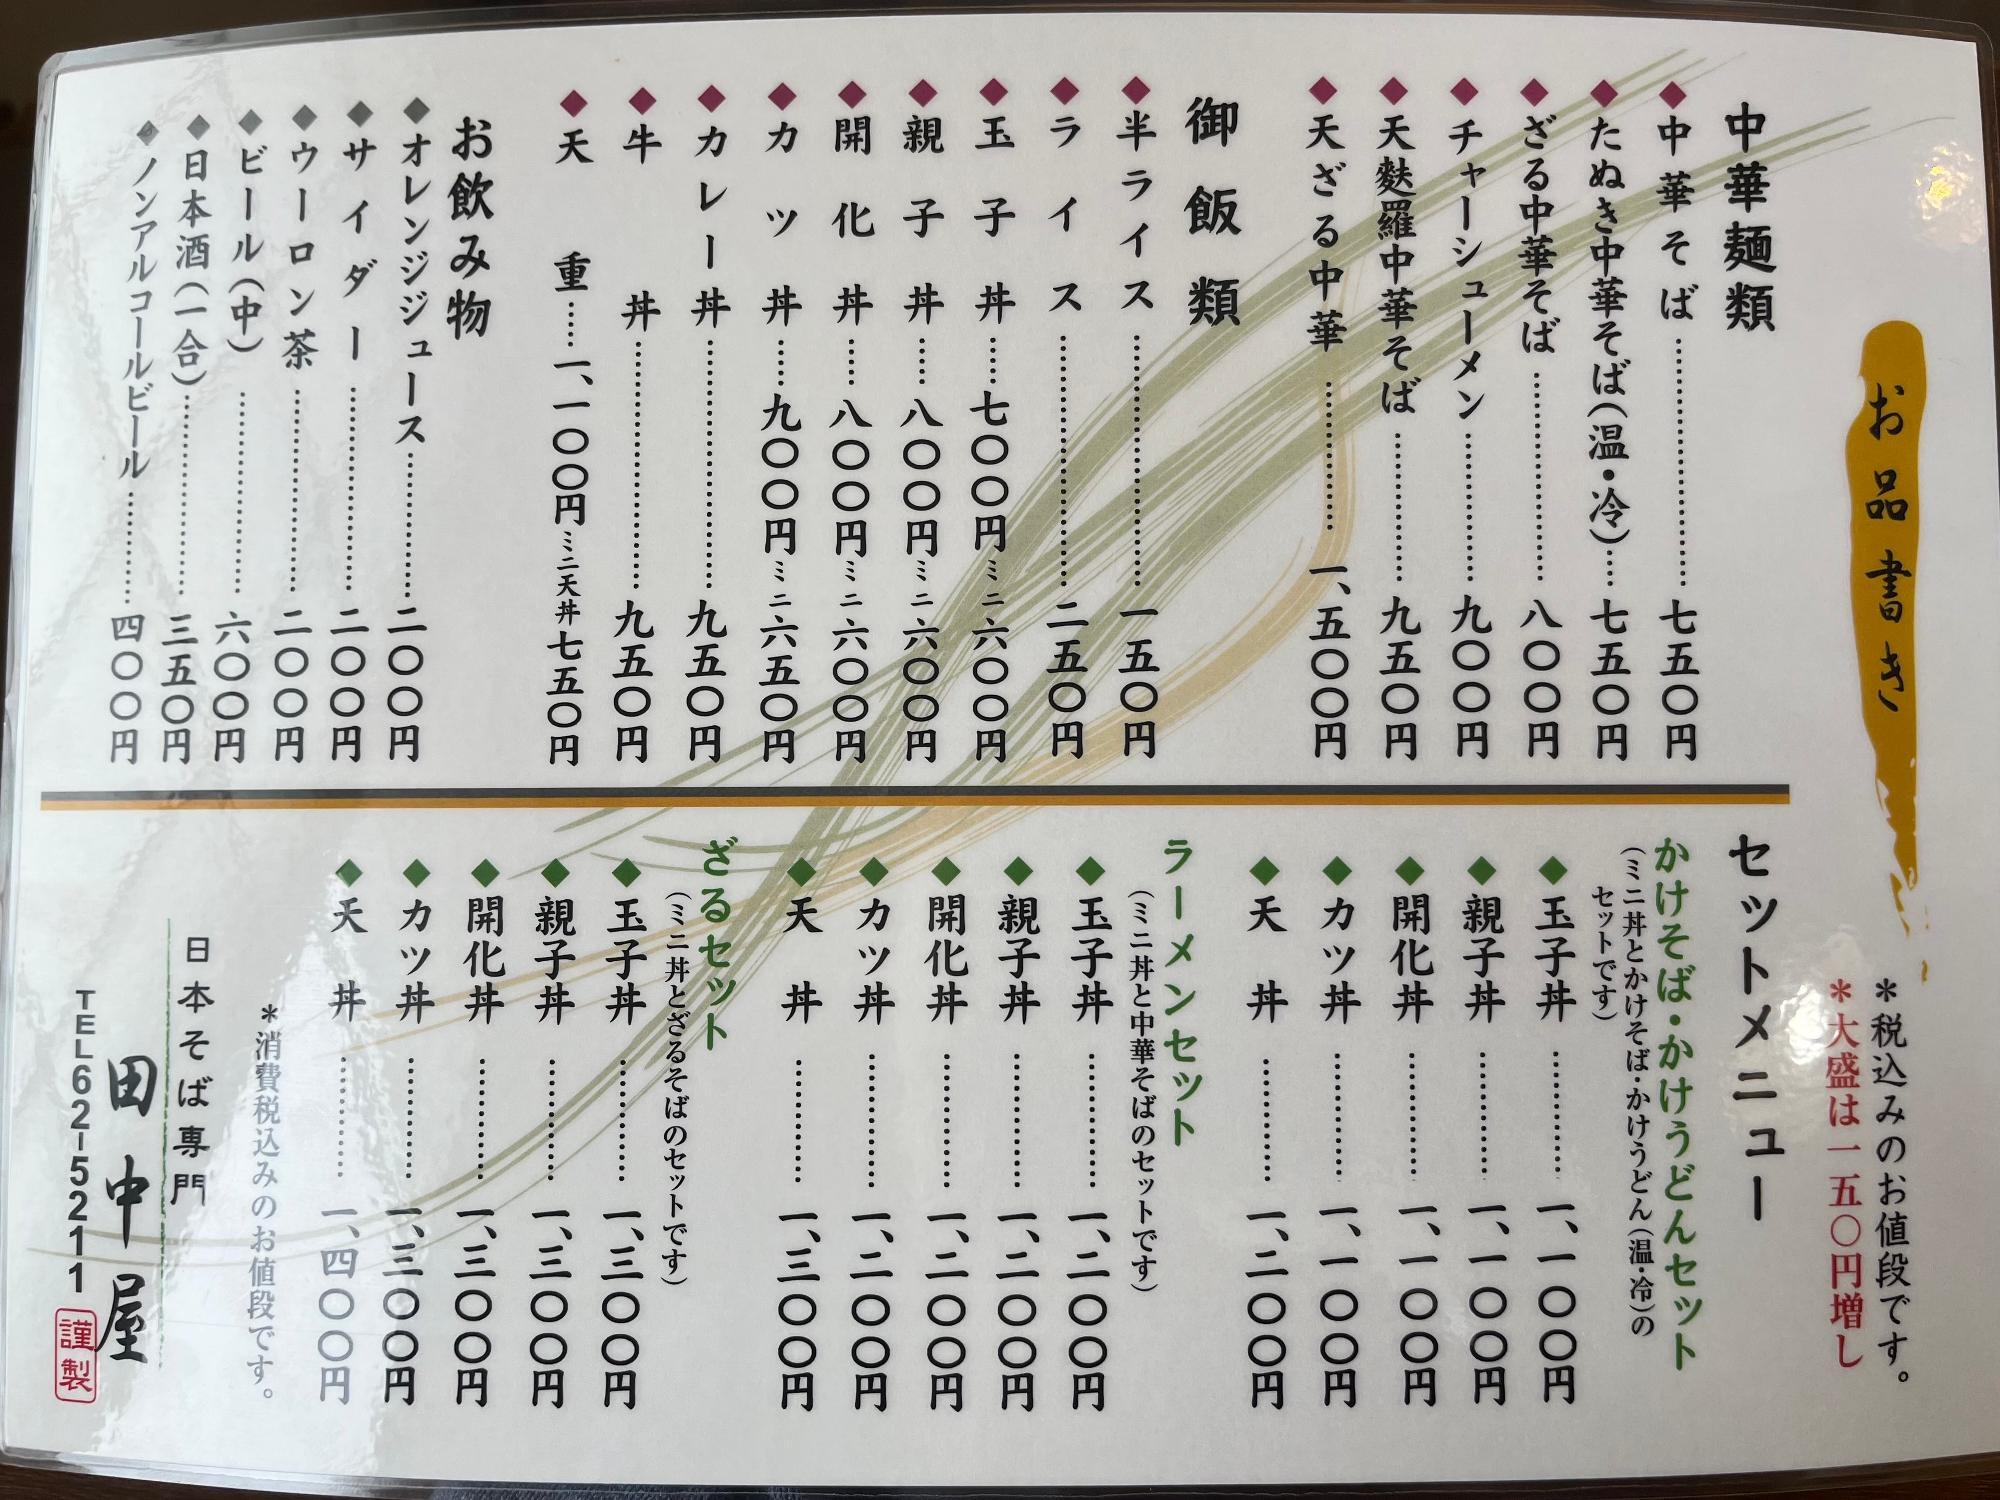 お品書き
＊税込みのお値段です。
＊大盛は一五〇円増し
中華麺類
◆中華そば…………七五〇円
◆たぬき中華そば（温・冷）……七五〇円
◆ざる中華そば…………八〇〇円
◆チャーシューメン…………九〇〇円
◆天麩羅中華そば…………九五〇円
◆天ざる中華…………一、五〇〇円
御飯類
◆半ライス…………一五〇円
◆ライス…………二五〇円
◆玉子丼……七〇〇円…ミニ六〇〇円
◆親子丼……八〇〇円…ミニ六〇〇円
◆開化丼……八〇〇円…ミニ六〇〇円
◆カツ丼……九〇〇円…ミニ六五〇円
◆カレー丼…………九五〇円
◆牛丼…………九五〇円
◆天重……一、一〇〇円…ミニ天丼七五〇円
お飲み物
◆オレンジジュース…………二〇〇円
◆サイダー…………二〇〇円
◆ウーロン茶…………二〇〇円
◆ビール（中）…………六〇〇円
◆日本酒（一合）…………三五〇円
◆ノンアルコールビール…………四〇〇円
セットメニュー
かけそば・かけうどんセット
（ミニ丼とかけそば・かけうどん（温・冷）の
セットです）
◆玉子丼…………一、一〇〇円
◆親子丼…………一、一〇〇円
◆開化丼…………一、一〇〇円
◆カツ丼…………一、一〇〇円
◆天丼…………一、二〇〇円
ラーメンセット
（ミニ丼と中華そばのセットです）
◆玉子丼…………一、二〇〇円
◆親子丼…………一、二〇〇円
◆開化丼…………一、二〇〇円
◆カツ丼…………一、二〇〇円
◆天丼…………一、三〇〇円
ざるセット
（ミニ丼とざるそばのセットです）
◆玉子丼…………一、三〇〇円
◆親子丼…………一、三〇〇円
◆開化丼…………一、三〇〇円
◆カツ丼…………一、三〇〇円
◆天丼…………一、四〇〇円
＊消費税込みのお値段です。
日本そば専門
田中屋
TEL62-5211
謹製